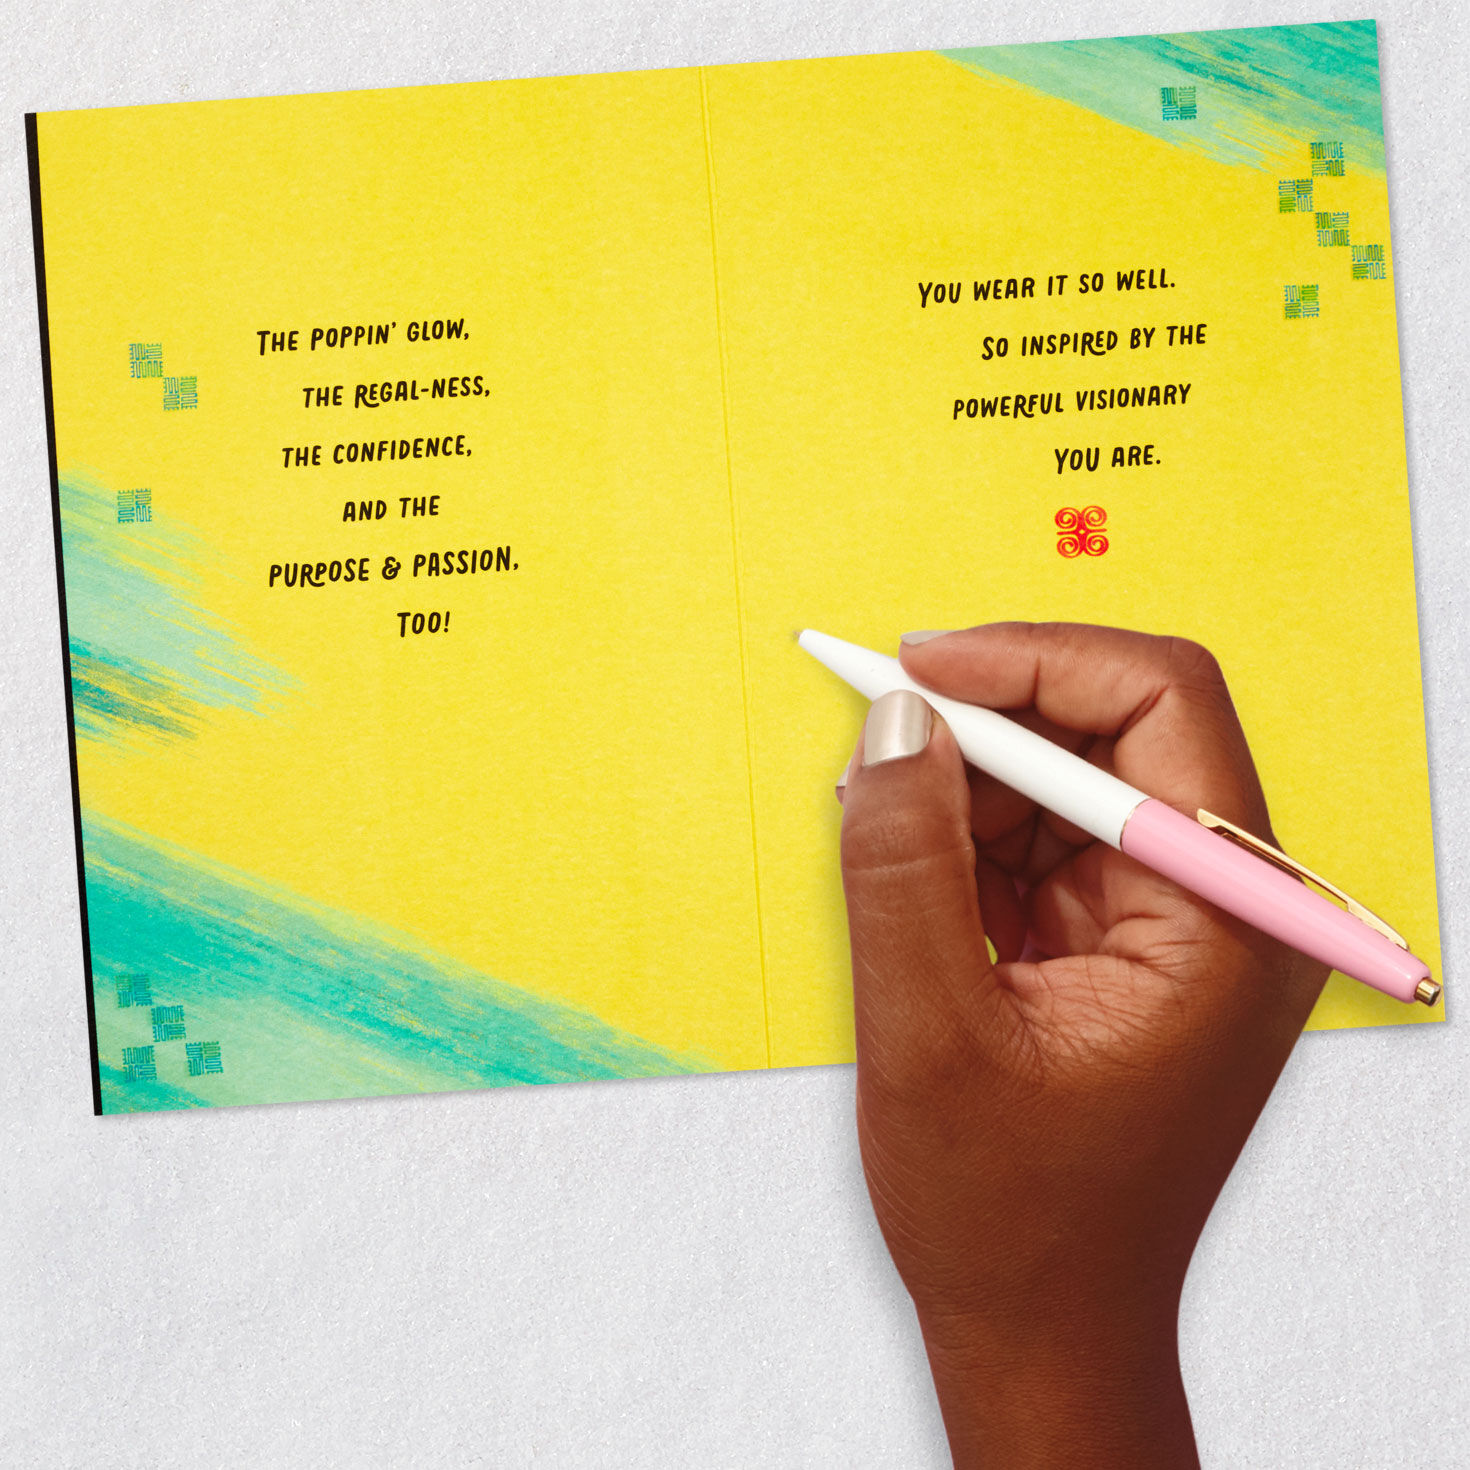 THE POPPIN' GLOW,
THE REGAL-NESS,
THE CONFIDENCE,
AND THE
PURPOSE & PASSION,
TOO!
YOU WEAR IT SO WELL.
SO INSPIRED BY THE
POWERFUL VISIONARY
YOU ARE.